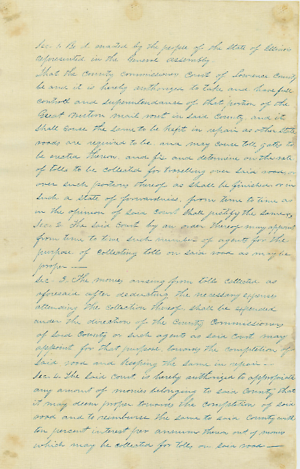 Sec. 1 Be it enacted by the people of the State of Illinois
represented in the General Assembly,
That the County commissioners Court of Lawrence County
be and it is hereby authorized to take and have full
control and superintendance of that portion of the
Great Western mail rout in said County and it
shall cause the same to be kept in repair as other state
roads are required to be, and may cause toll gates to
be erected thereon, and fix and determine on the rate
of tolls to be collected for travelling over said road
over such portions thereof as shall be finished or in
such a state of forwardness, from time to time as
in the opinion of said court shall justify the same.
Sec. 2 The said court by an order thereof may appoint
from time to time such number of agents for the
purpose of collecting tolls on said road as may be
proper
Sec. 3. The money arising from tolls collected as
aforesaid after deducting the necessary expense
attending the collection thereof shall be expended
under the direction of the County Commissioners
of said County or such agent as said court may
appoint for that purpose, towards the completion of
said road and keeping the same in repair.
Sec. 4 The said court is hereby authorized to appropriate
any amount of monies belonging to said County that
it may deem proper towards the completion of said
road and to reimburse the same to said County with
ten percent interest per annum thereon out of monies
which may be collected for tolls on said road